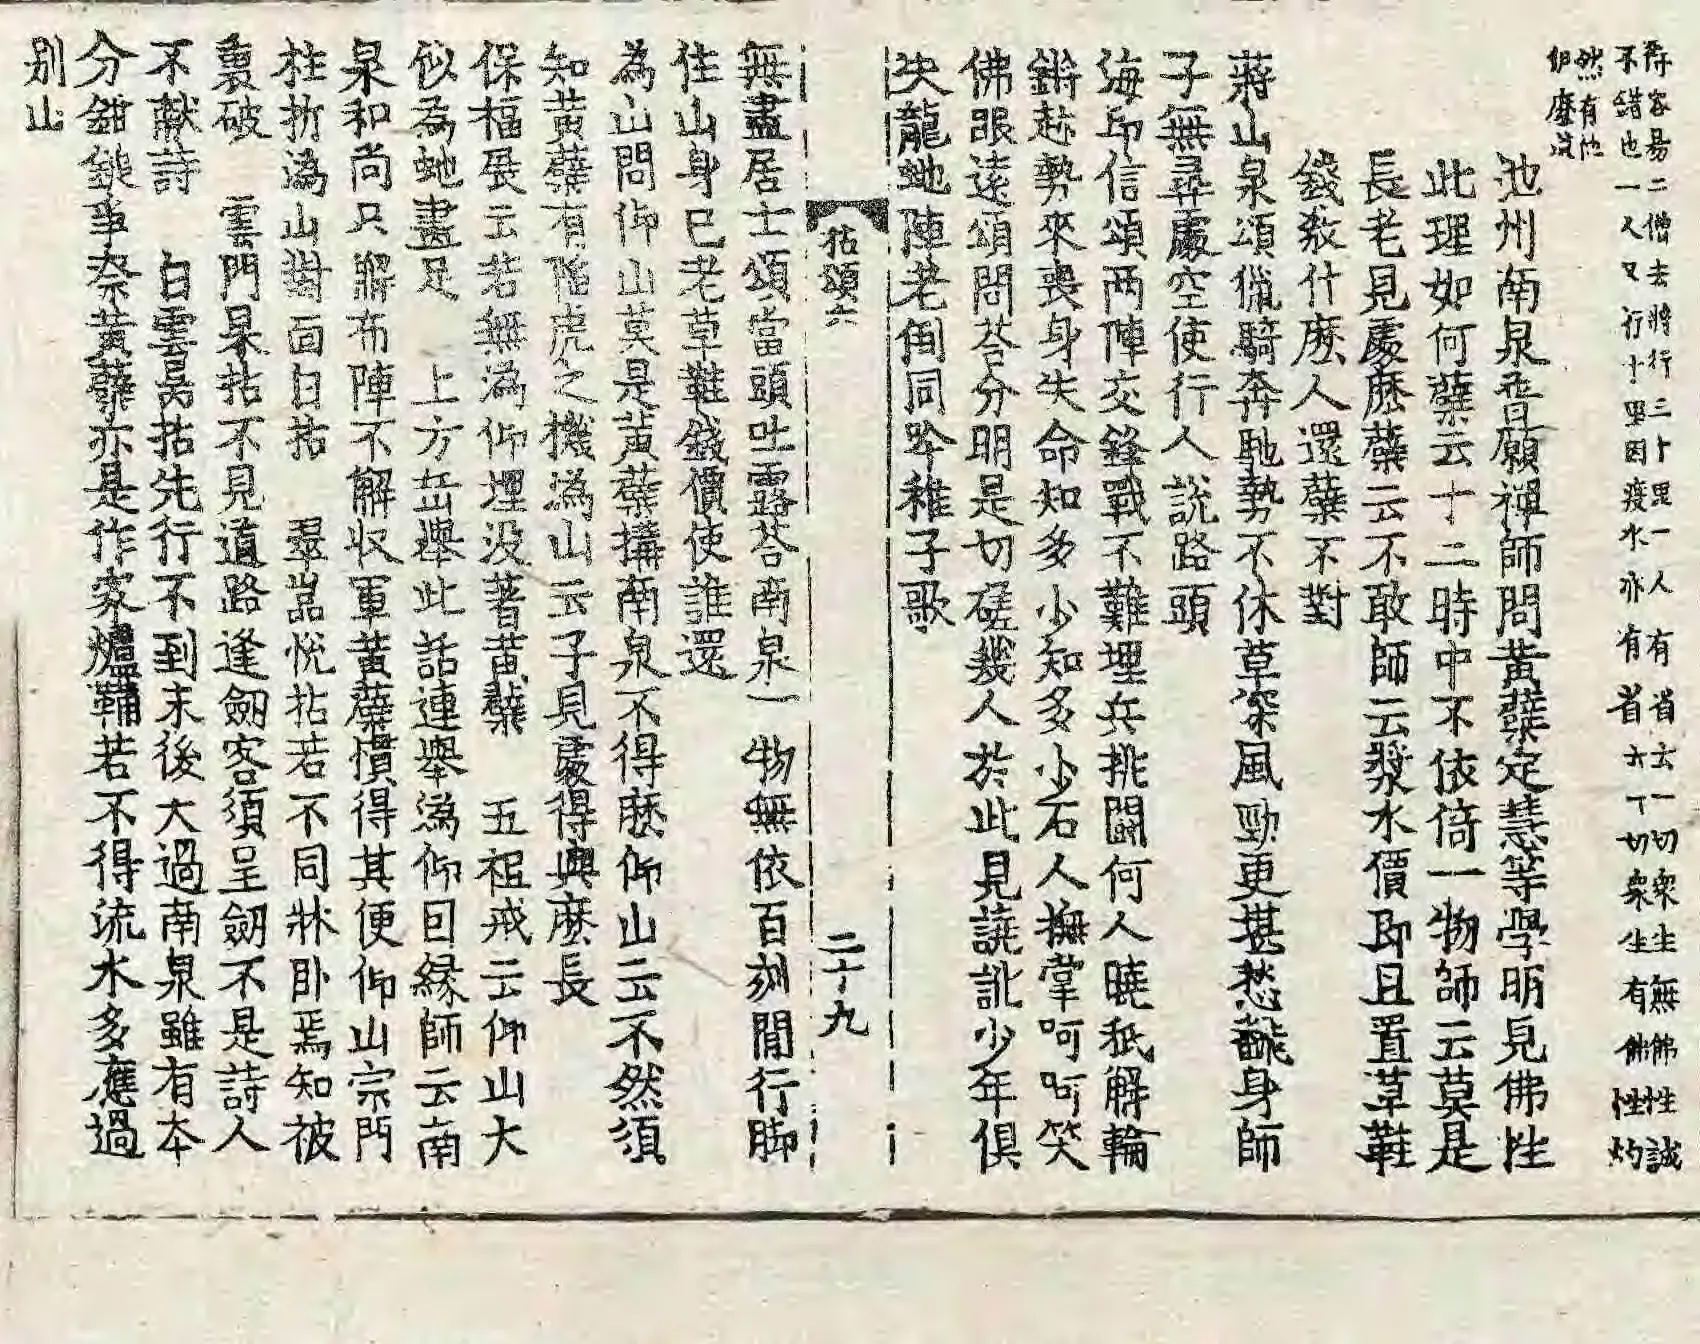 容易二僧去將行三十里一人有省云一切衆生無佛性誠
不錯也一人又行十里因渡水亦有省云一切衆生有佛性灼
然有他
恁麽道
池州南泉普願禪師問黃蘗定慧等學明見佛性
此理如何蘗云十二時中不依倚一物師云莫是
長老見處麽蘗云不敢師云漿水價即且置草鞋
錢敎什麽人還蘗不對
蔣山泉頌獵騎奔馳勢不休草深風勁更堪愁齖身師
子無尋處空使行人說路頭
海印信頌兩陣交鋒戰不難埋兵挑鬪何人曉秖解輪
鏘趂勢來喪身失命知多少知多少石人撫掌呵呵笑
佛眼遠頌問荅分明是切磋幾人於此見誵訛少年俱
决龍虵陣老倒同吟稚子歌
拈頌六
二十九
無盡居士頌當頭吐露荅南泉一物無依百刼閒行脚
住山身已老草鞋錢價使誰還
為山問仰山莫是黃蘗搆南泉不得麽仰山云不然須
知黃蘗有陷虎之機潙山云子見處得與麽長
保福展云若無潙仰埋没著黃蘗 五祖戒云仰山大
似為虵畫足 上方岳擧此話連擧潙仰因緣師云南
泉和尚只解布陣不解収軍黃蘗慣得其便仰山宗門
柱折潙山對面白拈 翠嵓悅拈若不同牀卧焉知被
裏破 雲門杲拈不見道路逢劒客須呈劒不是詩人
不献詩 白雲昺拈先行不到末後大過南泉雖有本
分鉗鎚爭奈黃蘗亦是作家爐鞴若不得流水多應過
别山